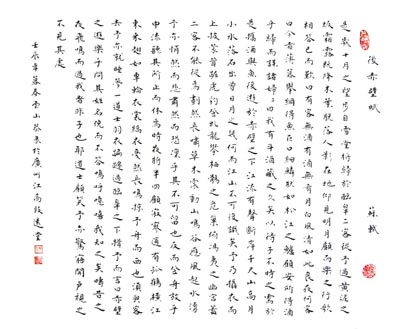 後赤壁賦 蘇軾
是歲十月之望步自雪堂將歸於臨皋二客從予過黃泥之
坂霜露既降木葉盡脫人影在地仰見明月顧而樂之行歌
相答已而歎曰有客無酒有酒無肴月白風清如此良夜何客
曰今者薄暮舉網得魚巨口細鱗狀如松江之鱸顧安所得酒
乎歸而謀諸婦婦曰我有斗酒藏之久矣以待子不時之需於
是攜酒與魚復遊於赤壁之下江流有聲斷岸千尺山高月
小水落石出曾日月之幾何而江山不可復識矣予乃攝衣而
上披蒙茸踞虎豹登虬龍攀棲鶻之危巢俯馮夷之幽宮蓋
二客不能從焉劃然長嘯草木震動山鳴谷應風起水湧
予亦悄然而悲肅然而恐凜乎其不可留也反而登舟放乎
中流聽其所止而休焉時夜將半四顧寂寥適有孤鶴橫江
東來翅如車輪玄裳縞衣戛然長鳴掠予舟而西也須臾客
去予亦就睡夢一道士羽衣蹁躚過臨皋之下揖予而言曰赤壁
之遊樂乎問其姓名俛而不答嗚呼噫嘻我知之矣疇昔之
夜飛鳴而過我者非子也邪道士顧笑予亦驚寤開戶視之
不見其處
壬辰年暮春於廣州江高致遠堂